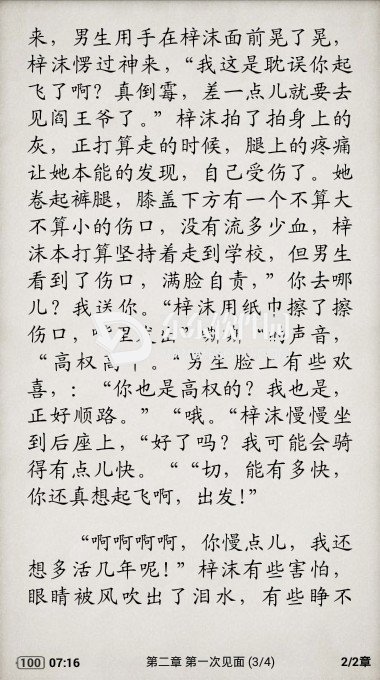 来，男生用手在梓沫面前晃了晃，
梓沫愣过神来，“我这是耽误你起
飞了啊？真倒霉，差一点儿就要去
见阎王爷了。”梓沫拍了拍身上的
灰，正打算走的时候，腿上的疼痛
让她本能的发现，自己受伤了。她
卷起裤腿，膝盖下方有一个不算大
不算小的伤口，没有流多少血，梓
沫本打算坚持着走到学校，但男生
看到了伤口，满脸自责，”你去哪
儿？我送你。“梓沫用纸巾擦了擦
伤口，”的声音，
“高权高中。“男生脸上有些欢
喜，：“你也是高权的？我也是，
正好顺路。”“哦。“梓沫慢慢坐
到后座上，“好了吗？我可能会骑
得有点儿快。““切，能有多快，
你还真想起飞啊，出发！”
“啊啊啊啊，你慢点儿，我还
想多活几年呢！”梓沫有些害怕，
眼睛被风吹出了泪水，有些睁不
100 07:16 第二章 第一次见面 (3/4) 2/2章